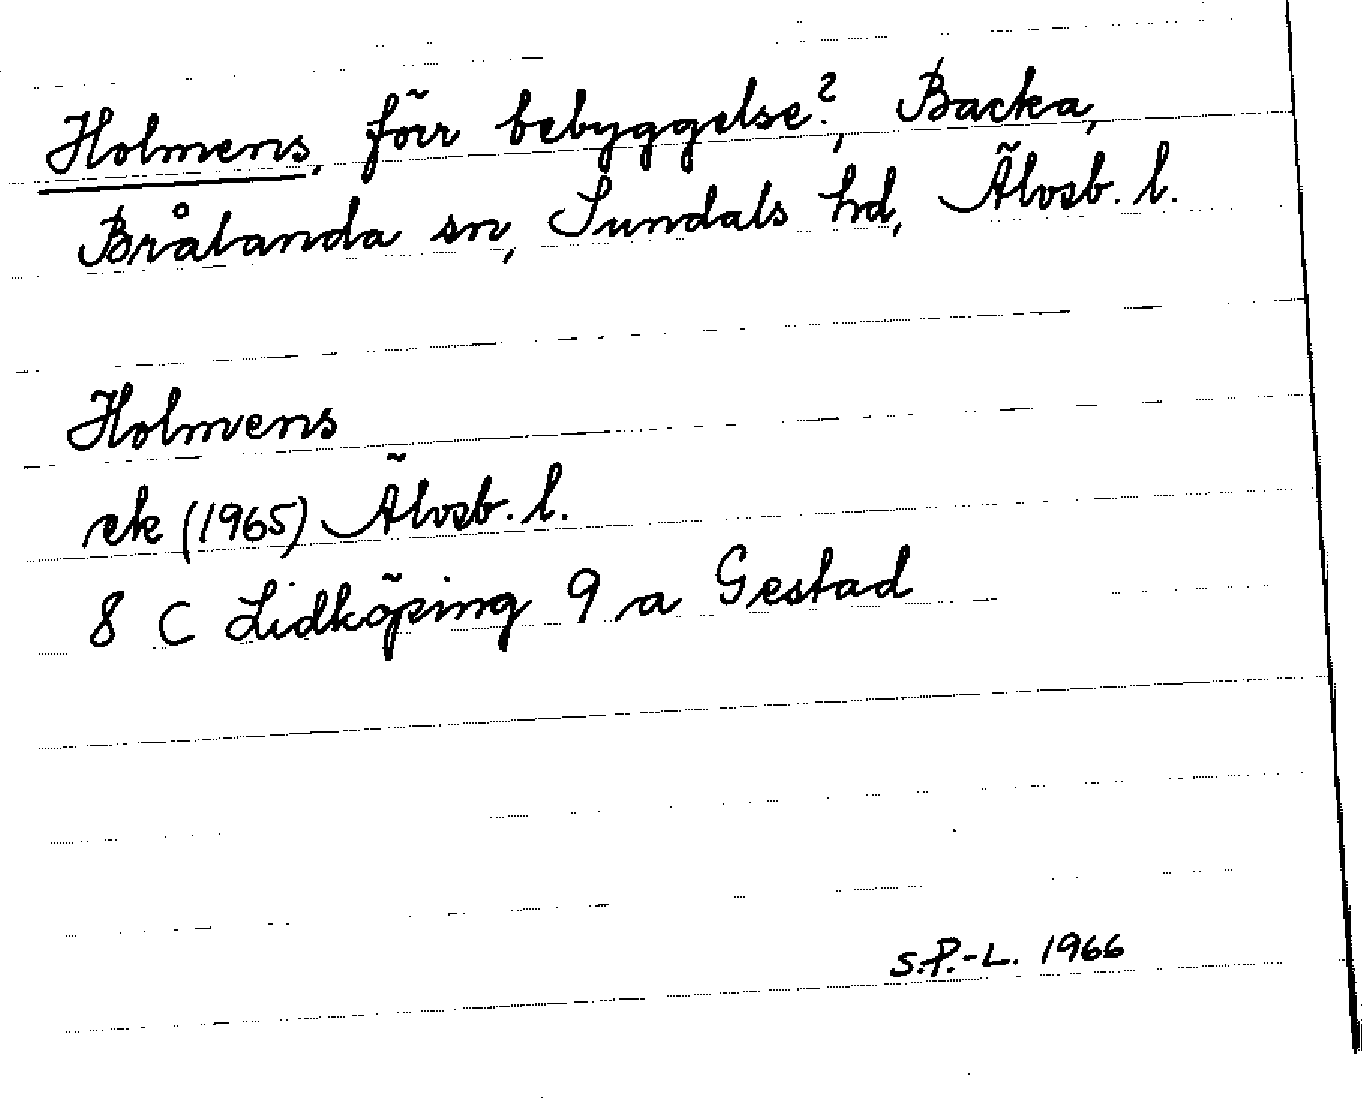 Holmens, förr bebyggelse?, Backa,
Brålanda sn, Sundals hd, Älvsb. l.
Holmens
ek (1965) Älvsb. l.
8 C Lidköping 9 a Gestad
S.P.-L. 1966